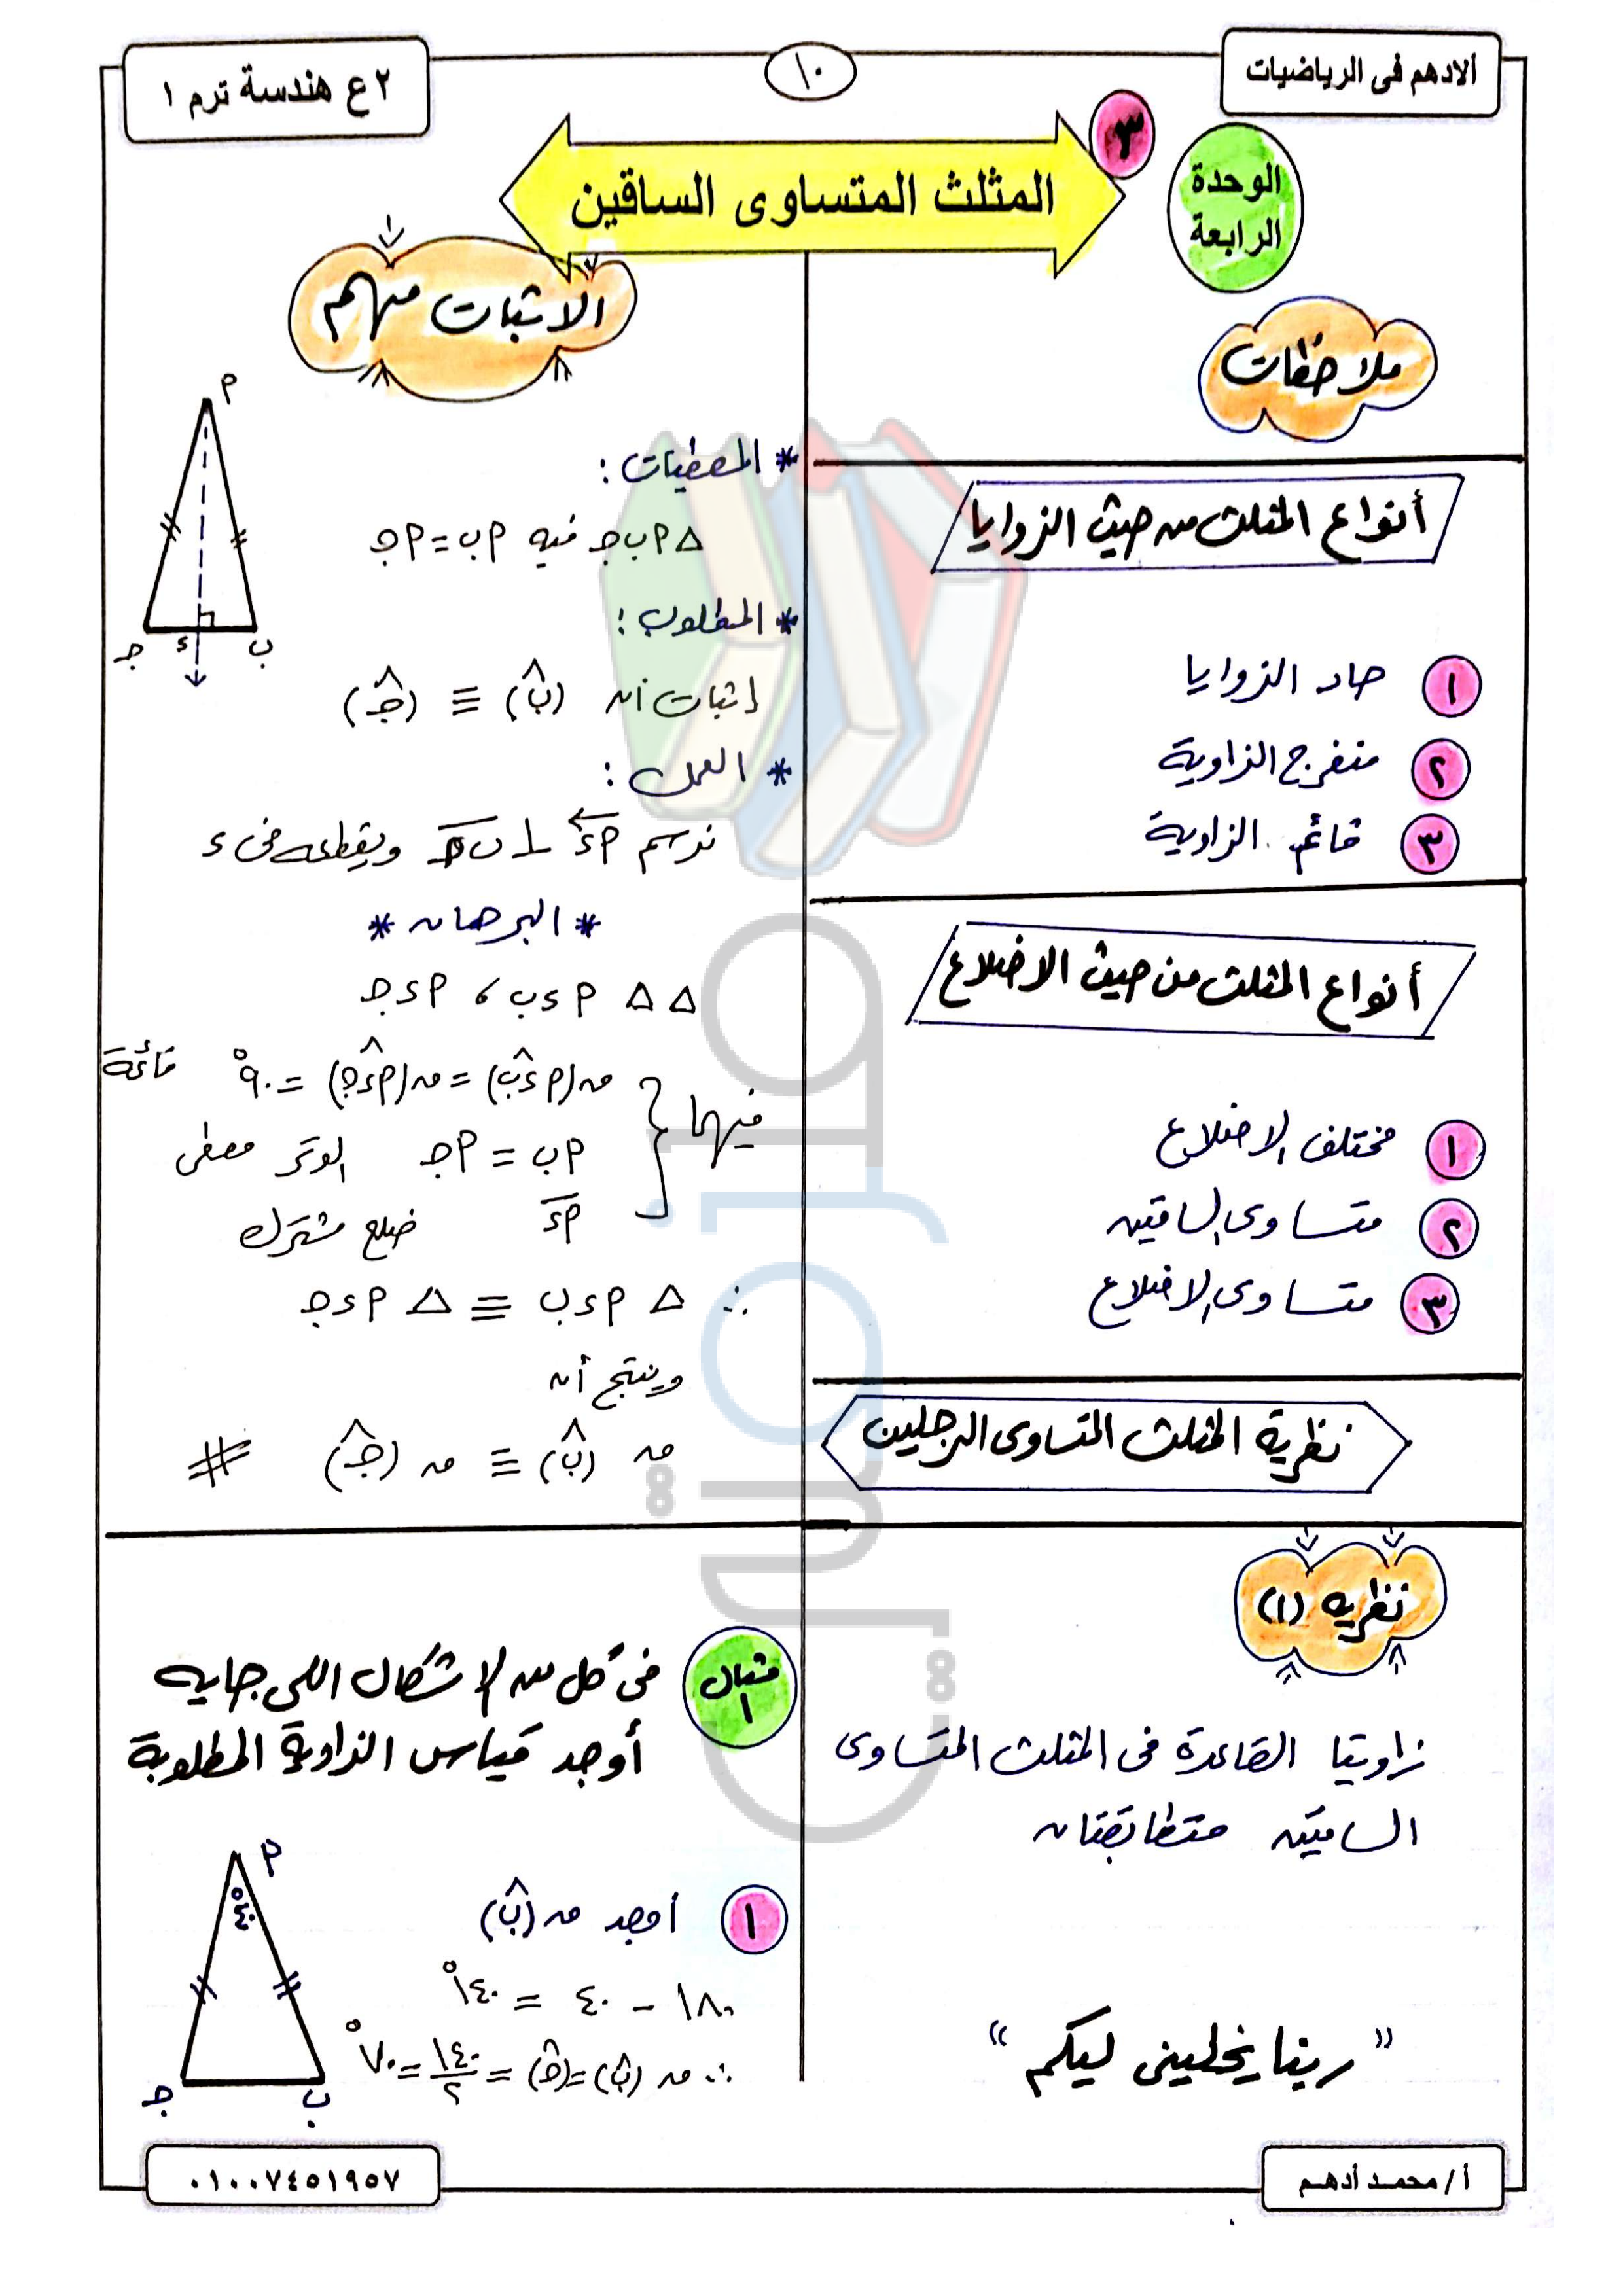 ألادهم فى الرياضيات
١٠
٢ع هندسة ترم ١
الوحدة
الرابعة
٣
المثلث المتساوى الساقين
ملاحظات
أنواع المثلث من حيث الزوايا
١ حاد الزوايا
٢ منفرج الزاوية
٣ قائم الزاوية
أنواع المثلث من حيث الاضلاع
١ مختلف الاضلاع
٢ متساوى الساقين
٣ متساوى الاضلاع
نظرية المثلث المتساوى الرجلين
نظريه (١)
زاويتا القاعدة فى المثلث المتساوى
الساقين متطابقتان
" ربنا يخليني ليكم "
الاثبات مهم
* المعطيات :
△ ٩ ب جـ فيه ٩ ب = ٩ جـ
* المطلوب :
إثبات أن (ب̂) ≡ (جـ̂)
* العمل :
نرسم ٩ء ⊥ ب جـ ويقطعه فى ء
* البرهان *
△△ ٩ ء ب ، ٩ ء جـ
فيهما { ق(٩ ء̂ ب) = ق(٩ ء̂ جـ) = ٩٠° قائمة
٩ ب = ٩ جـ الوتر معطى
٩ء ضلع مشترك
∴ △ ٩ ء ب ≡ △ ٩ ء جـ
وينتج أن
ق (ب̂) ≡ ق (جـ̂) #
٩
جـ ء ب
مثال ١
فى كل من الاشكال اللى جايه
أوجد قياس الزاوية المطلوبة
١ أوجد ق (ب̂)
١٨٠ − ٤٠ = ١٤٠°
∴ ق (ب̂) = (جـ̂) = ١٤٠/٢ = ٧٠°
٩
٤٠°
جـ ب
أ/ محمد أدهم
٠١٠٠٧٤٥١٩٥٧